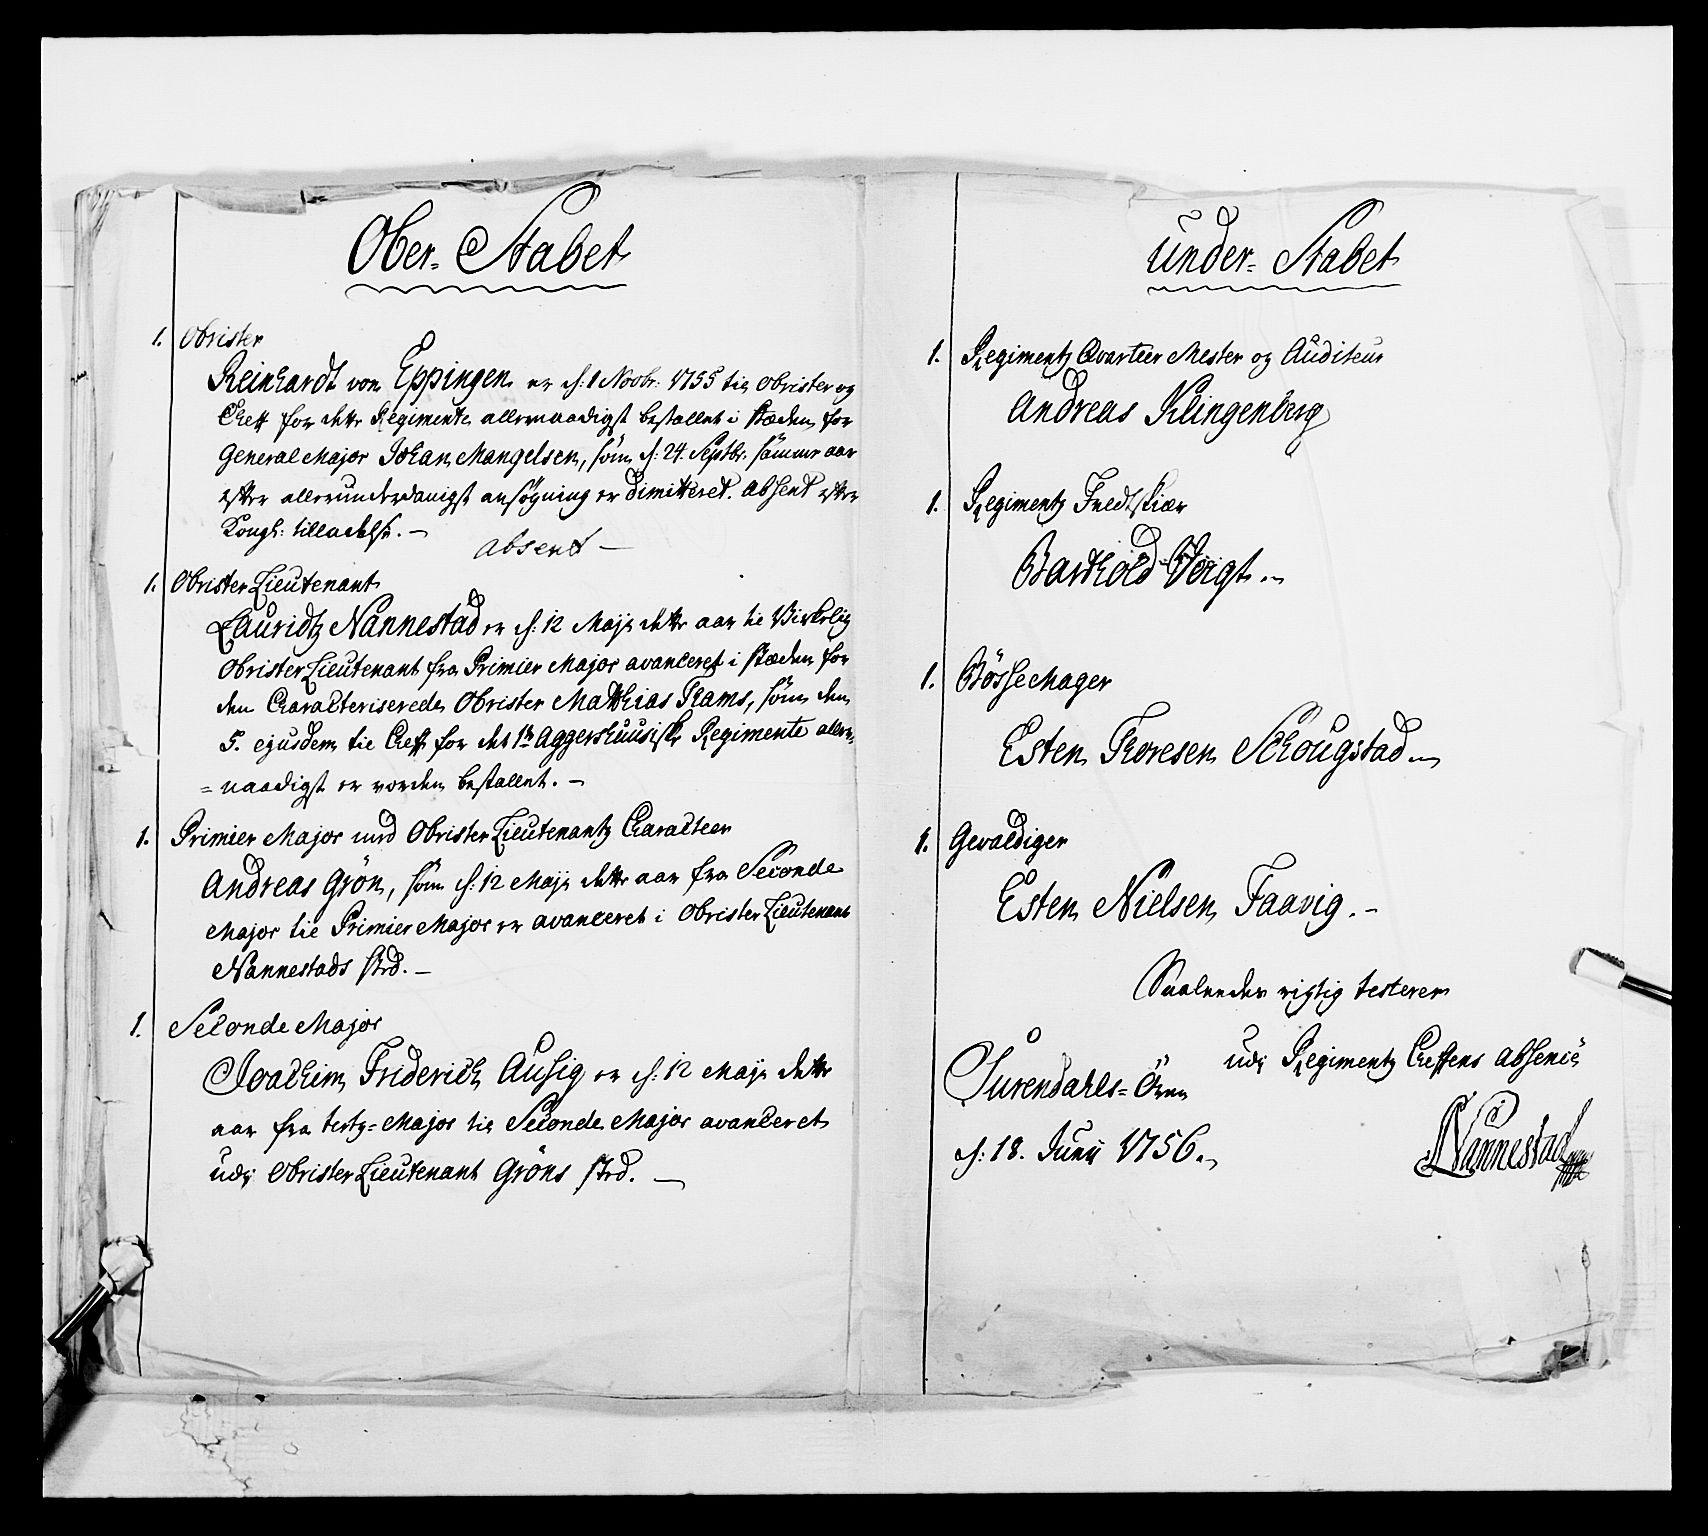 Ober- Stabet
1. Obrister
Reinhardt von Eppingen er d: 1 Novbr: 1755 til Obrister og
Cheff for dette Regimente allernaadigst bestallet i stæden for
General Major Johan Mangelsen, som d: 24 Septbr. samme aar
efter allerunderdanigst ansøgning er dimitteret. Absent efter
Kongl: tilladelse. –
absent –
1. Obrister Lieutenant
Lauridtz Nannestad er d: 12 Maji dette aar til Virkelig
Obrister Lieutenant fra Primier Major avanceret i stæden for
den Characteriserede Obrister Matthias Rams, som den
5. ejusdem til Cheff for det 1te Aggershuusiske Regimente aller-
= naadigst er vorden bestallet. –
1. Primier Major med Obrister Lieutenantz Characteer
Andreas Grön, som d: 12 Maji dette aar fra Seconde
Major til Primier Major er avanceret i Obrister Lieutenant
Nannestads sted. –
1. Seconde Major
Joachim Friderich Ausig er d: 12 Maji dette
aar fra tertz= Major til Seconde Major avanceret
udi Obrister Lieutenant Gröns sted. –
Under- Stabet
1. Regimentz Qvarteer Mester og Auditeur
Andreas Klingenberg
1. Regimentz Feldtskiær
Barthold Voigt. –
1. Bösse Mager
Esten Thoresen Schougstad –
1. Gevaldiger
Esten Nielsen Faavig. –
Saaleedes rigtig testerer
udi Regimentz Cheffens absence
Surendahls= Ören
d: 18. Junii 1756. –
Nannestad